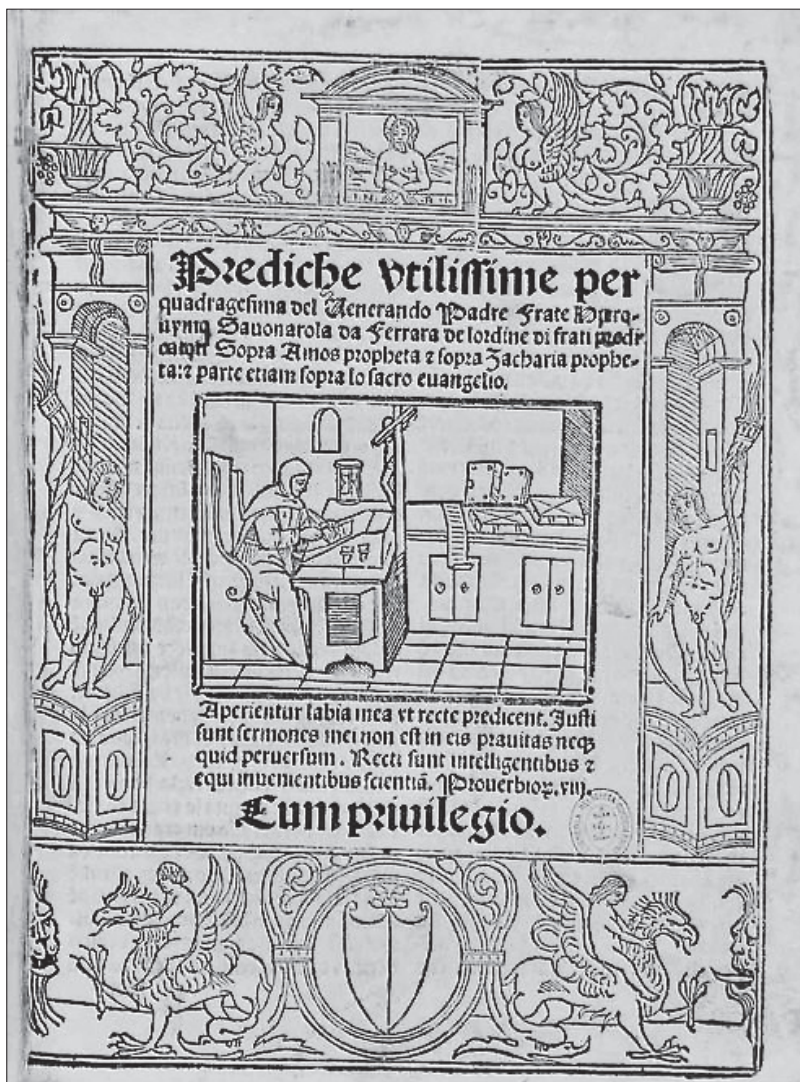 Prediche vtilissime per
quadragesima del Uenerando Padre Frate
Sauonarola da Ferrara de lordine di frati
Sopra Amos propheta ⁊ sopra Zacharia prophe-
ta:⁊ parte etiam sopra lo sacro euangelio.
Aperientur labia mea vt recte predicent. Justi
sunt sermones mei non est in eis prauitas neqꝫ
quid peruersum. Recti sunt intelligentibus ⁊
equi inuenientibus scientiā. Prouerbioꝝ. viij.
Cum priuilegio.